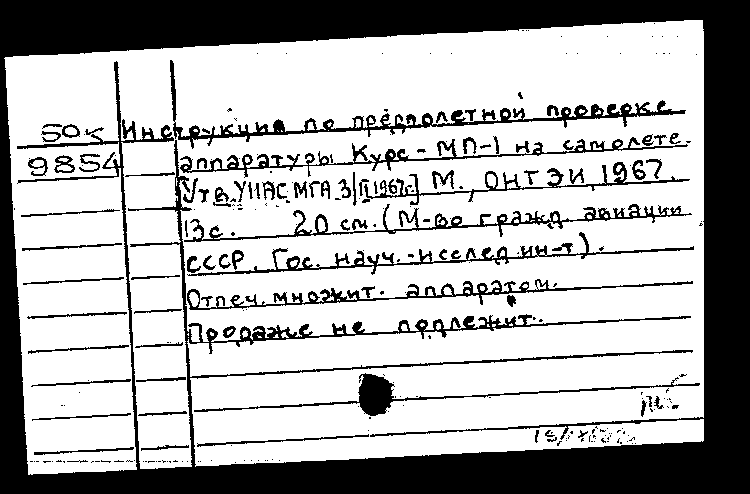 50к Инструкция по предполетной проверке
9854 аппаратуры Курс-МП-1 на самолете.
[Утв. УИАС МГА 3/II 1967г.] М., ОНТЭИ, 1967.
13с. 20 см. (М-во гражд. авиации
СССР. Гос. науч.-исслед. ин-т).
Отпеч. множит. аппаратом.
Продаже не подлежит.